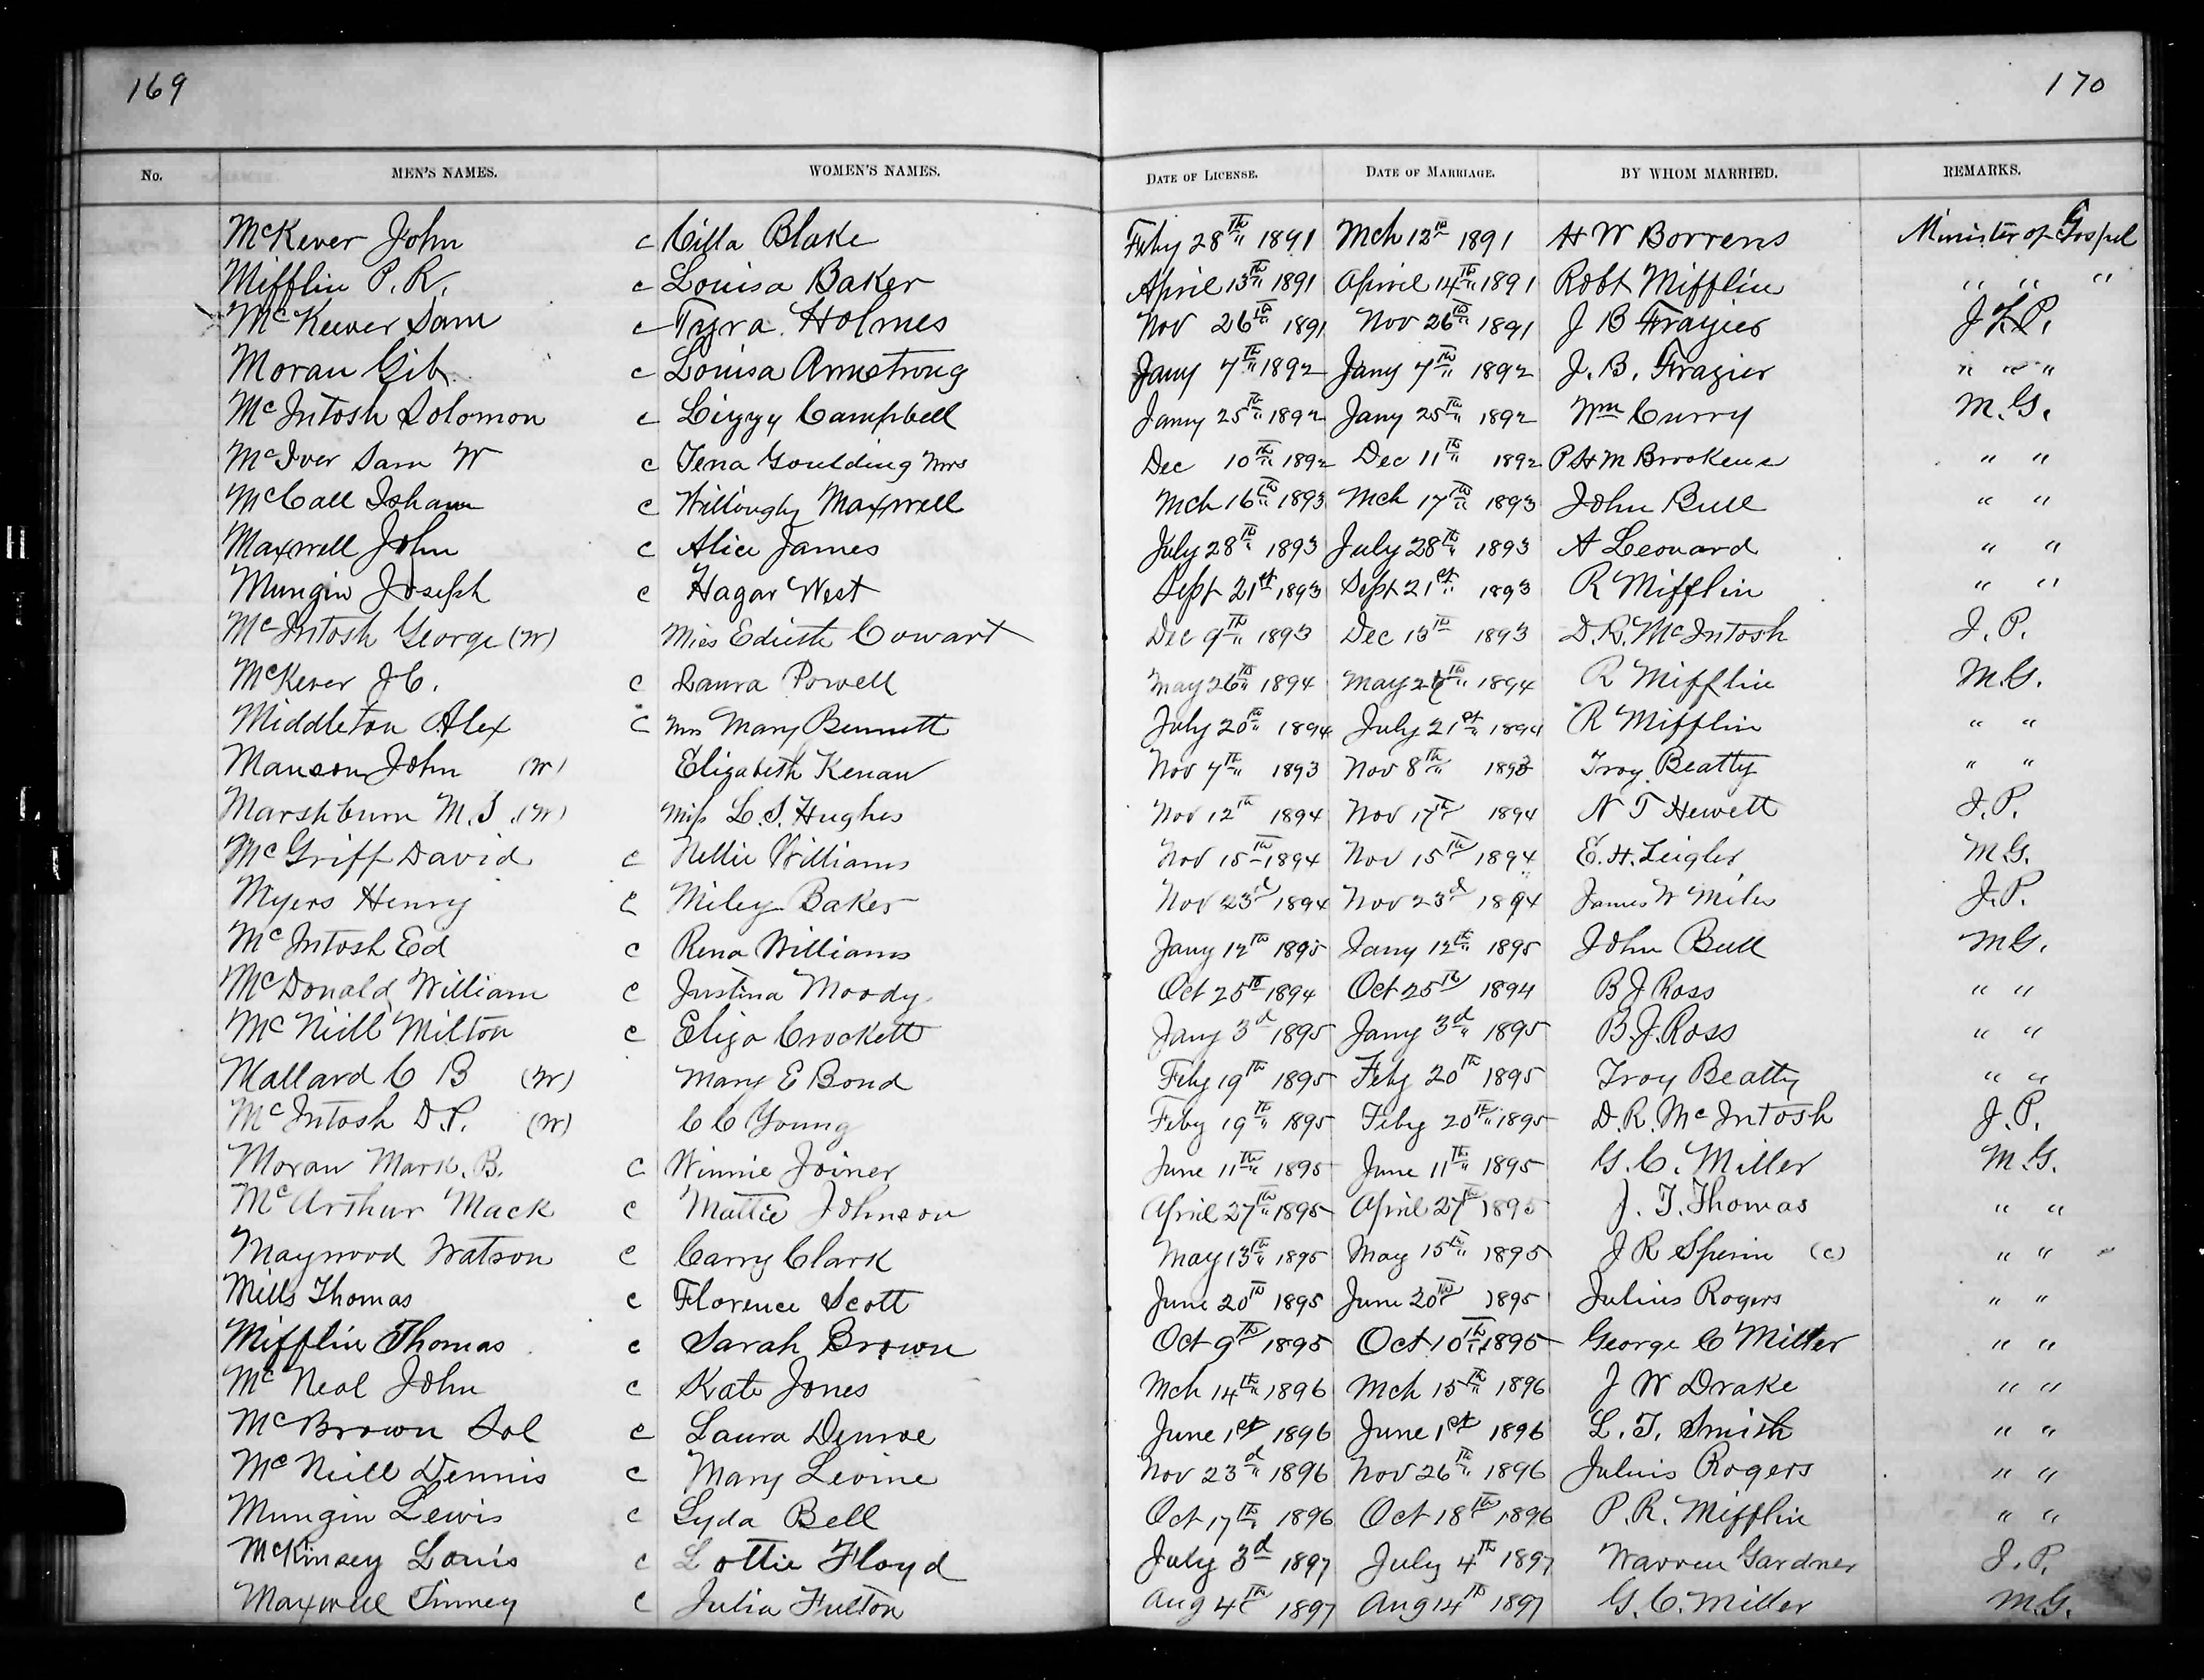 169
170
No. MEN'S NAMES. WOMEN'S NAMES. DATE OF LICENSE. DATE OF MARRIAGE. BY WHOM MARRIED. REMARKS.
McKever John c Cilla Blake Feby 28th 1891 Mch 12th 1891 H W Borrens Minister of Gospel
Mifflin P. R. c Louisa Baker April 13th 1891 April 14th 1891 Robt Mifflin " " "
McKeever Sam c Tyra Holmes Nov 26th 1891 Nov 26th 1891 J B Frazier J.P.
Moran Gib c Louisa Armstrong Jany 7th 1892 Jany 7th 1892 J. B. Frazier " " "
McIntosh Solomon c Lizzy Campbell Jany 25th 1892 Jany 25th 1892 Wm Curry M.G.
McIver Sam W c Tena Goulding Mrs Dec 10th 1892 Dec 11th 1892 P H M Brookens " "
McCall Isham c Willoughy Maxwell Mch 16th 1893 Mch 17th 1893 John Bull " "
Maxwell John c Alice James July 28th 1893 July 28th 1893 A Leonard " "
Mungin Joseph c Hagar West Sept 21st 1893 Sept 21st 1893 R Mifflin " "
McIntosh George (W) Miss Edieth Cowart Dec 9th 1893 Dec 13th 1893 D. R. McIntosh J. P.
McKever J C. c Laura Powell May 26th 1894 May 26th 1894 R Mifflin M.G.
Middleton Alex c Mrs Mary Bennett July 20th 1894 July 21st 1894 R Mifflin " "
Manson John (W) Elizabeth Kenan Nov 7th 1893 Nov 8th 1893 Troy Beatty " "
Marshburn M. S. (W) Miss L. S. Hughes Nov 12th 1894 Nov 17th 1894 N T Hewett J. P.
McGriff David c Nellie Williams Nov 15th 1894 Nov 15th 1894 E. H. Zeigler M.G.
Myers Henry c Miley Baker Nov 23d 1894 Nov 23d 1894 James W Miles J.P.
McIntosh Ed c Rena Williams Jany 12th 1895 Jany 12th 1895 John Bull M.G.
McDonald William c Justina Moody Oct 25th 1894 Oct 25th 1894 B J Ross " "
McNiell Milton c Eliza Crockett Jany 3d 1895 Jany 3d 1895 B. J. Ross " "
Mallard C B (W) Mary E Bond Feby 19th 1895 Feby 20th 1895 Troy Beatty " "
McIntosh D. P. (W) C C Young Feby 19th 1895 Feby 20th 1895 D. R. McIntosh J. P.
Moran Mark. B. c Winnie Joiner June 11th 1895 June 11th 1895 G. C. Miller M.G.
McArthur Mack c Mattie Johnson April 27th 1895 April 27th 1895 J. T. Thomas " "
Maywood Watson c Carry Clark May 13th 1895 May 15th 1895 J R Sperin (c) " "
Mills Thomas c Florence Scott June 20th 1895 June 20th 1895 Julius Rogers " "
Mifflin Thomas c Sarah Brown Oct 9th 1895 Oct 10th 1895 George C Miller " "
McNeal John c Kate Jones Mch 14th 1896 Mch 15th 1896 J W Drake " "
McBrown Sol c Laura Denroe June 1st 1896 June 1st 1896 L. T. Smith " "
McNeill Dennis c Mary Levine Nov 23d 1896 Nov 26th 1896 Julius Rogers " "
Mungin Lewis c Lyda Bell Oct 17th 1896 Oct 18th 1896 P. R. Mifflin " "
McKinsey Louis c Lottie Floyd July 3d 1897 July 4th 1897 Warren Gardner J. P.
Maxwell Tinney c Julia Fulton Aug 4th 1897 Aug 14th 1897 G. C. Miller M.G.